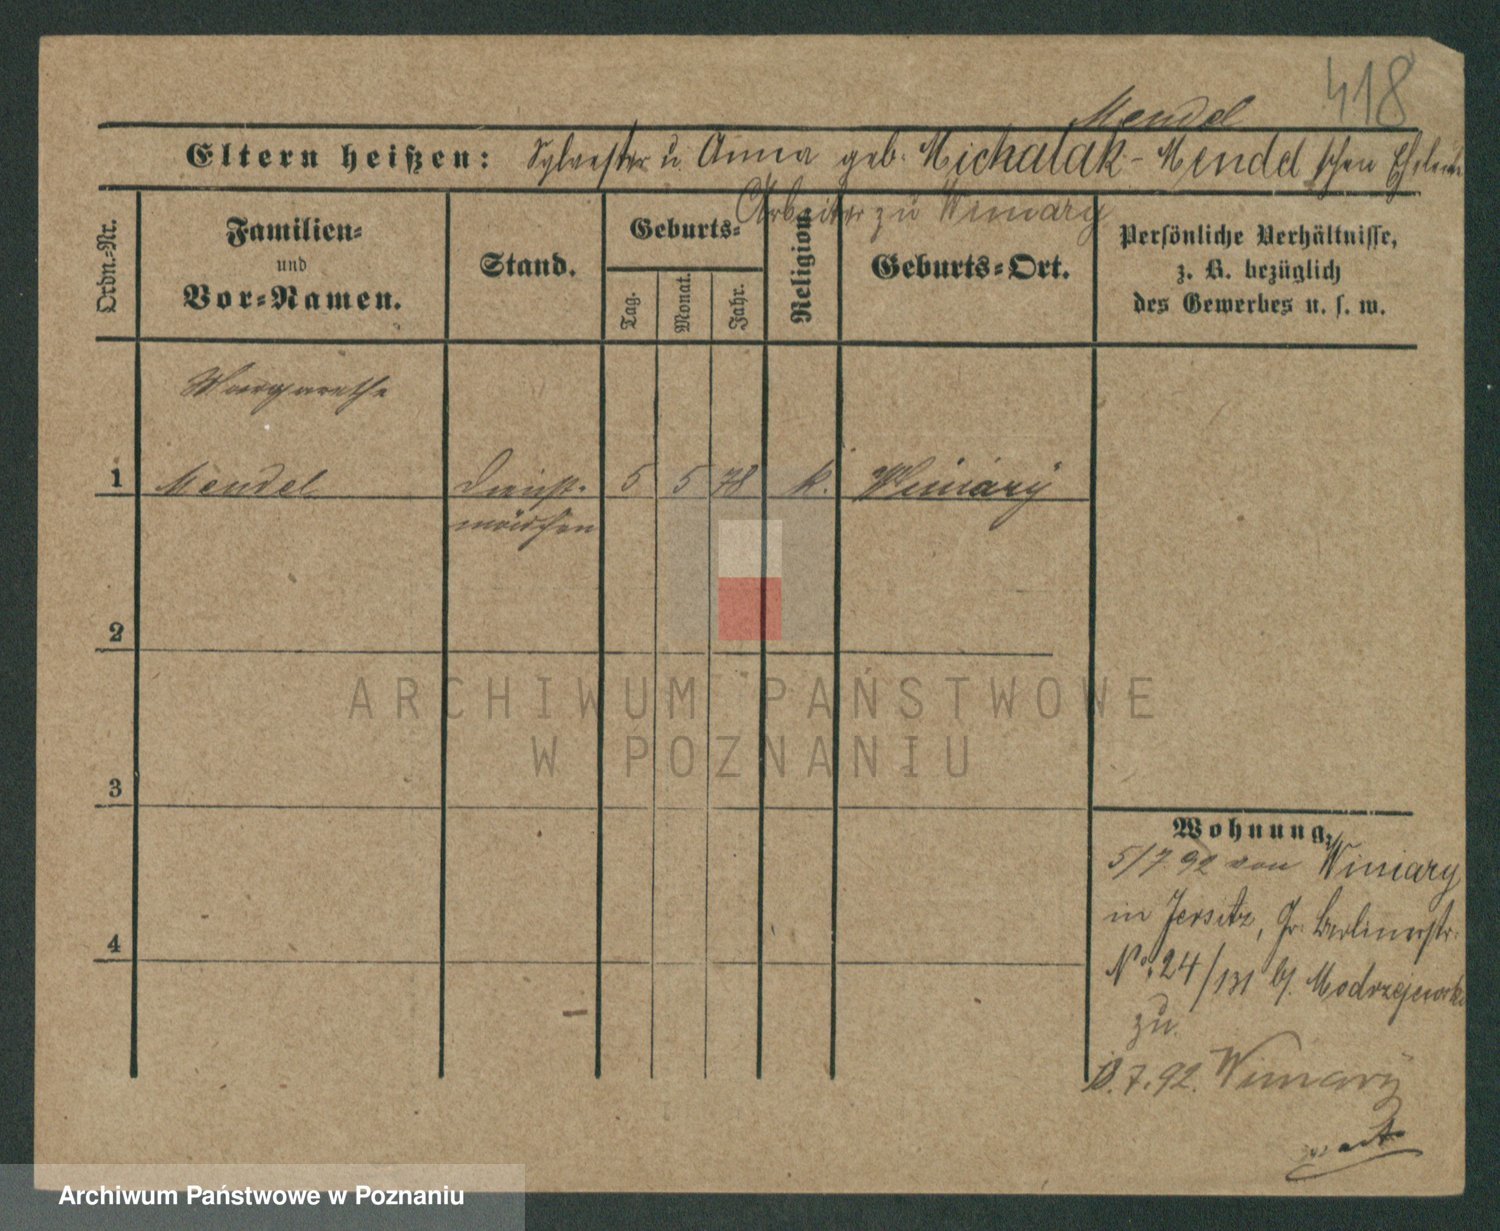 418
Mendel
Eltern heißen: Sylvester u. Anna geb. Michalak-Mendel schen Eheleute
Arbeiter zu Winiary
Ordn.-Nr.
Familien-
und
Vor-Namen.
Stand.
Geburts-
Tag.
Monat.
Jahr.
Religion.
Geburts-Ort.
Persönliche Verhältnisse,
z. B. bezüglich
des Gewerbes u. s. w.
Margarethe
1 Mendel Dienst- 5 5 78 k. Winiary
mädchen
2
3
4
Wohnung.
5/7.92 von Winiary
in Jersitz, Gr. Berlinerstr.
No. 24/131 b/. Modrzejewski
zu
13.7.92. Winiary
ARCHIWUM PAŃSTWOWE
W POZNANIU
Archiwum Państwowe w Poznaniu